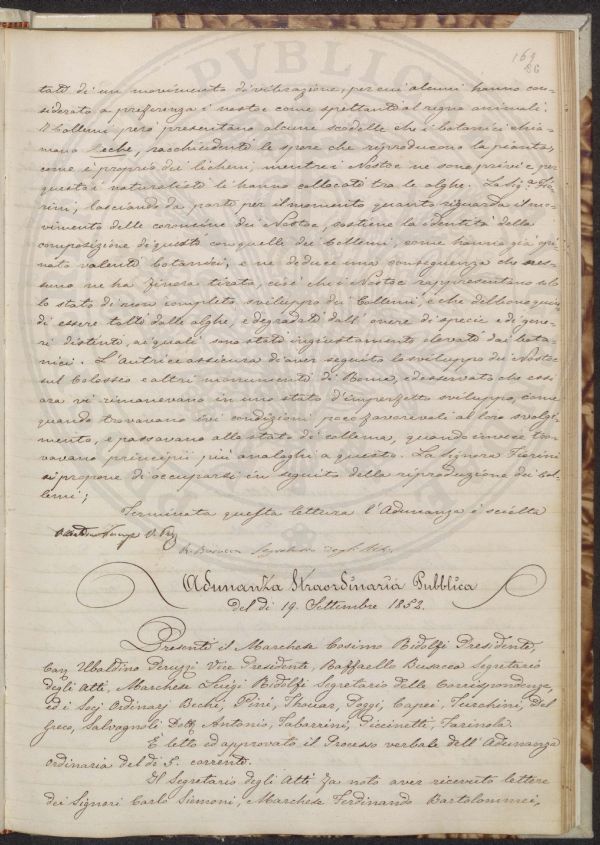 169
86
tati di un movimento di vibrazione, per cui alcuni hanno con-
siderato a preferenza i nostoc come spettanti al regno animali.
I Collemi però presentano alcune scodelle che i botanici chia-
mano Teche, racchiudenti le spore che riproducono la pianta,
come è proprio dei licheni, mentre i Nostoc ne sono privi e per
questo i naturalisti li hanno collocati tra le alghe. La Sig.ra Fio-
rini, lasciando da parte per il momento quanto riguarda il mo-
vimento delle coroncine dei Nostoc, sostiene la identità della
composizione di questi con quelle dei Collemi, come hanno già opi-
nato valenti botanici, e ne deduce una conseguenza che nes-
suno ne ha finora tirata, cioè che i Nostoc rappresentano solo
lo stato di non completo sviluppo dei Collemi, e che debbono quin-
di essere tolti dalle alghe, e degradati dall'onere di specie e di gene-
ri distinti, ai quali sono stati ingiustamente elevati dai bota-
nici. L'autrice assicura di aver seguito lo sviluppo dei Nostoc
sul Colosseo e altri monumenti di Roma, ed osservato che essi
ora vi rimanevano in uno stato d'imperfetto sviluppo, come
quando trovavano ivi condizioni poco favorevoli al loro svolgi-
mento, e passavano allo stato di collema, quando invece tro-
vavano principii più analoghi a questo. La Signora Fiorini
si propone di occuparsi in seguito della riproduzione dei Col-
lemi;
Terminata questa lettura l'Adunanza è sciolta
V. P.
R. Busacca Segretario degli Atti.
Adunanza Straordinaria Pubblica
del dì 19. Settembre 1852.
Presenti il Marchese Cosimo Ridolfi Presidente,
Cav. Ubaldino Peruzzi Vice Presidente, Raffaello Busacca Segretario
degli Atti, Marchese Luigi Ridolfi Segretario delle Corrispondenze,
ed i Socj Ordinarj Bechi, Pini, Thouar, Poggi, Capei, Turchini, Del
Greco, Salvagnoli Dott. Antonio, Tabarrini, Piccinetti, Farinola.
È letto ed approvato il Processo verbale dell'Adunanza
ordinaria del dì 5. corrente.
Il Segretario degli Atti fa noto aver ricevuto lettere
dei Signori Carlo Siemoni, Marchese Ferdinando Bartolommei,